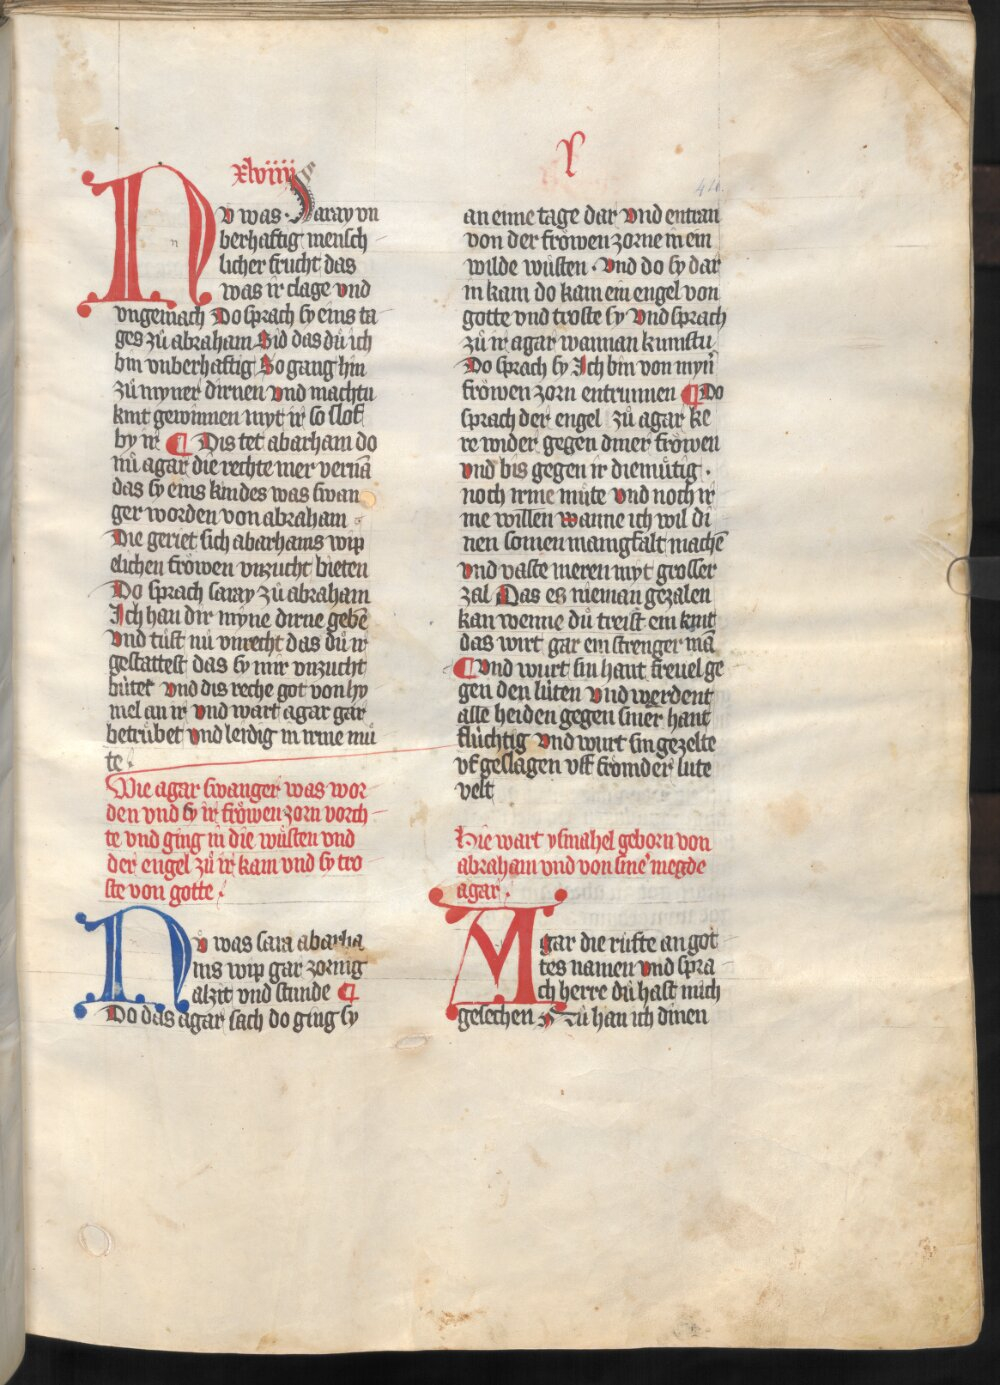 xlviiij
Nv was Saray vn
berhaftig mensch
licher frucht das
was ir clage vnd
vngemach Do sprach sy eins ta
ges zů abraham Sid das dů ich
bin vnberhaftig So gang hin
zů myner dirnen vnd machtu
kint gewinnen myt ir so slof
by ir ¶ Dis tet abarham do
nů agar die rechte mer vernā
das sy eins kindes was swan
ger worden von abraham
Die geriet sich abarhams wip
elichen fröwen vnzucht bieten
Do sprach saray zů abraham
Ich han dir myne dirne gebē
vnd tůst nů vnrecht das dů ir
gestattest das sy mir vnzucht
bütet vnd dis reche got von hy
mel an ir vnd wart agar gar
betrübet vnd leidig in irme mů
te
Wie agar swanger was wor
den vnd sy ir fröwen zorn vorch
te vnd ging in die wůsten vnd
der engel zů ir kam vnd sy tro
ste von gotte
Nů was sara abarha
ms wip gar zornig
alzit vnd stunde ¶
Do das agar sach do ging sy
L
an eime tage dar vnd entran
von der fröwen zorne in ein
wilde wůsten vnd do sy dar
in kam do kam ein engel von
gotte vnd troste sy vnd sprach
zů ir agar wannan kumstu
Do sprach sy Ich bin von myn̄
fröwen zorn entrunnen ¶ Do
sprach der engel zů agar ke
re wider gegen diner fröwen
vnd bis gegen ir diemůtig
noch irme můte vnd noch ir
me willen wanne ich wil di
nen somen manigfalt machē
vnd vaste meren myt grosser
zal Das es nieman gezalen
kan wenne dů treist ein kint
das wirt gar ein strenger mā
¶ vnd wurt sin hant freuel ge
gen den lüten vnd werdent
alle heiden gegen siner hant
flüchtig vnd wurt sin gezelte
vf geslagen vff fromder lüte
velt
Hie wart ysmahel geborn von
abraham vnd von sine megde
agar
Agar die růfte an got
tes namen vnd spra
ch herre dů hast mich
gesechen Nů han ich dinen